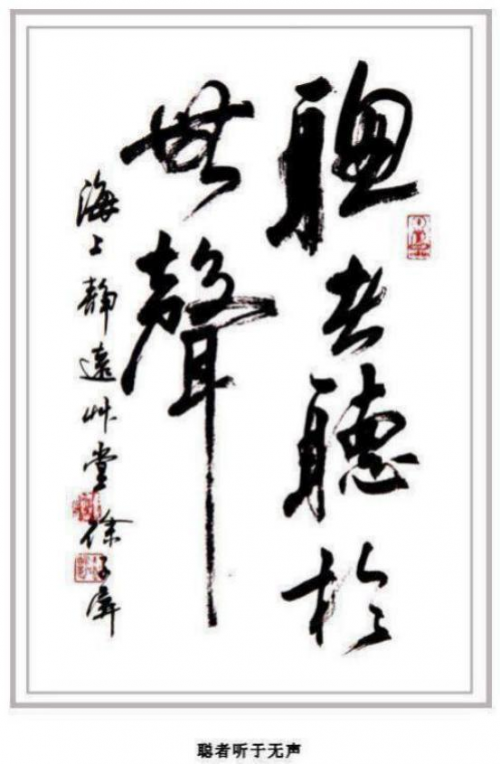 聰者聽於
無聲
海上靜遠艸堂徐子屏
聪者听于无声